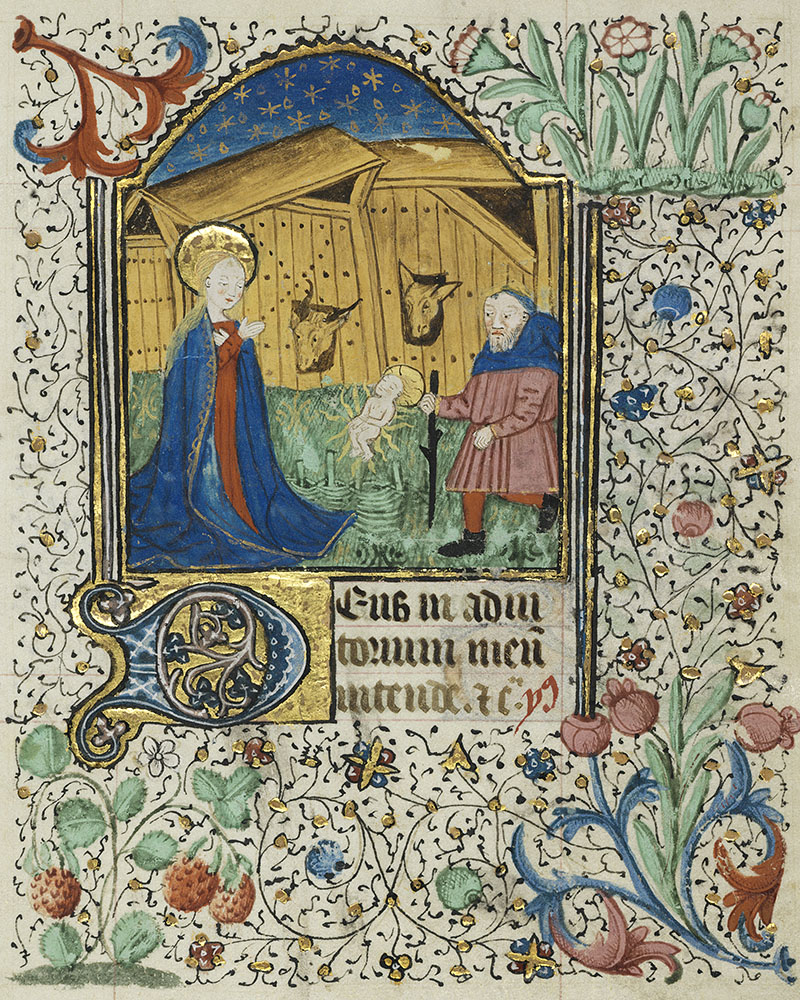 Deus in adiu
torium meū
intende. ⁊ c̃. pˢ